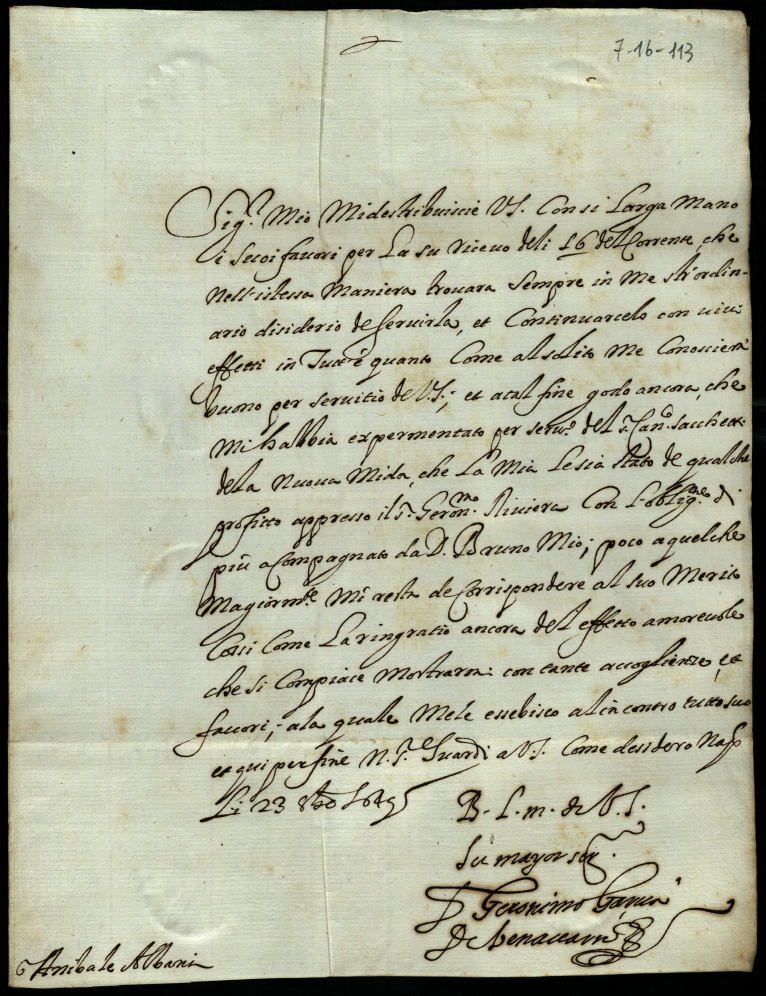 7-16-113
Sig.r Mio Midestribuiscie VS. Con si Larga Mano
i Suoi favori per La su riceuo deli 16 del Corrente, che
Nell'istessa Maniera trouara Sempre in Me str'ordin-
ario disiderio de seruirla, et Continuarcelo con uiui
effetti in Tutt'e quanto Come al solito Me Conoscierà
buono per seruitio de V.S.; et a tal fine godo ancora, che
Mi habbia expermentato per seru.o del s.r sacchetti
dela Nuoua Mida, che La Mia Le sia stato de qualche
profitto appresso il s.r Geron.mo Riuiera Con l'oblig.ne di
più acompagnato da D. Bruno Mio; poco a quelche
Magiorm.te Mi resta de Corrispondere al suo Merito
Cossi Come La ringratio ancora del effetto amoreuole
che si Compiace Mostrarmi con tante accoglienze, et
fauori; ala quale Mele essebisco al incontro tutto suo
et qui per fine N.S. Guardi a V.S. Come desidero Nap
Li 23
B. L. m. de V.S.
Su mayor ser.
D Geronimo Garcia
De
Anibale Albani